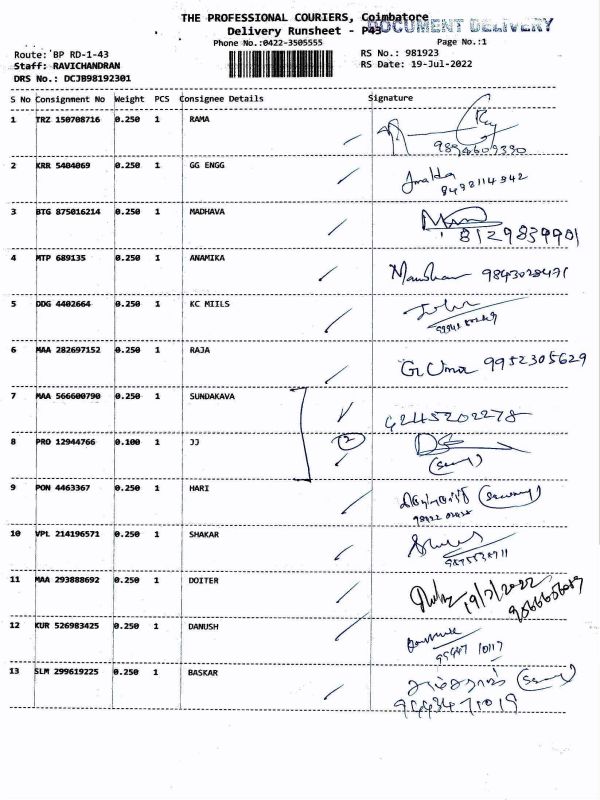 THE PROFESSIONAL COURIERS, Coimbatore
DOCUMENT DELIVERY
Delivery Runsheet - P43
Phone No.:0422-3505555
Page No.:1
Route: BP RD-1-43
RS No.: 981923
Staff: RAVICHANDRAN
RS Date: 19-Jul-2022
DRS No.: DCJB98192301
S No Consignment No Weight PCS Consignee Details Signature
1 TRZ 150708716 0.250 1 RAMA
2 KRR 5404069 0.250 1 GG ENGG
3 BTG 875016214 0.250 1 MADHAVA
8129839901
4 MTP 689135 0.250 1 ANAMIKA
9843028471
5 DDG 4402664 0.250 1 KC MIILS
6 MAA 282697152 0.250 1 RAJA
9952305629
7 MAA 566600790 0.250 1 SUNDAKAVA
8 PRO 12944766 0.100 1 JJ 2
9 PON 4463367 0.250 1 HARI
10 VPL 214196571 0.250 1 SHAKAR
11 MAA 293888692 0.250 1 DOITER
19/7/2022
12 KUR 526983425 0.250 1 DANUSH
13 SLM 299619225 0.250 1 BASKAR